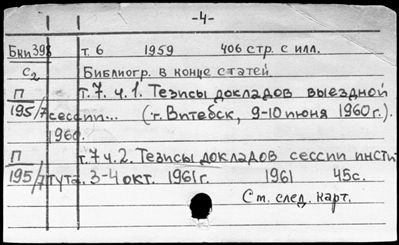 -4-
Бки 398 т. 6 1959 406 стр. с илл.
с2 Библиогр. в конце статей
П т. 7. ч. 1. Тезисы докладов выездной
195/7 сессии... (г. Витебск, 9-10 июня 1960 г.).
1960.
П т. 7 ч. 2. Тезисы докладов сессии инсти
195/7 тута. 3-4 окт. 1961г. 1961 45с.
См. след. карт.